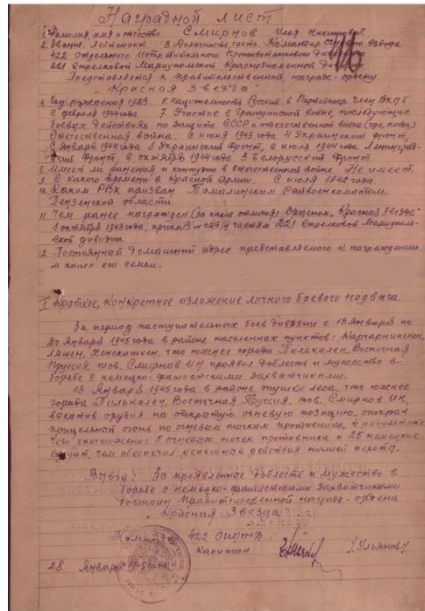 Наградной лист
1. Фамилия, имя и отчество Смирнов Илья Никитович
2. Звание Лейтенант 3. Должность, часть Командир Взвода
422 Отдельного Истребительного Противотанкового Дивизиона
221 Стрелковой Мариупольской Краснознаменной Дивизии
Представляется к правительственной награде ордену
"Красная Звезда"
4. Год рождения 1923. 5. Национальность Русский 6. Партийность Член ВКП/б
с февраля 1944 года. 7. Участие в Гражданской войне, последующих
боевых действиях по защите СССР и отечественной войне (где, когда)
Отечественная война. с июня 1943 года 4 Украинский фронт,
с Января 1944 года 1 Украинский фронт, с июля 1944 года Ленинград-
ский фронт, с октября 1944 года 3 Белорусский фронт.
8. Имеет ли ранения и контузии в отечественной войне Не имеет.
9. С какого времени в Красной Армии. С июля 1942 года.
10. Каким РВК призван Тамалинским Райвоенкоматом
Пензенской области.
11. Чем ранее награжден (за какие отличия) Орденом "Красная Звезда"
1 октября 1943 года, приказ № 029/н частям 221 Стрелковой Мариуполь-
ской дивизии.
12. Постоянный домашний адрес представляемого к награждению
и адрес его семьи.
I Краткое, конкретное изложение личного боевого подвига
За период наступательных боев дивизии с 13 Января по
Января 1945 года в районе населенных пунктов:
что южнее города Пилькален, Восточная
Пруссия, тов. Смирнов И.Н. проявил доблесть и мужество в
борьбе с немецко-фашистскими захватчиками.
13 Января 1945 года в районе опушки леса, что южнее
города Пилькален, Восточная Пруссия, тов. Смирнов И.Н.
выкатив орудия на открытую огневую позицию, открыл
прицельный огонь по огневым точкам противника, в результате
чего уничтожено: 5 огневых точек противника и 25 немецких
солдат, чем обеспечил успешные действия нашей пехоты.
Вывод: За проявленные доблесть и мужество в
борьбе с немецко-фашистскими захватчиками
достоин Правительственной награды - ордена
"Красная Звезда"
422 ОИПТД
Капитан /Ульянов/
28 Января 1945 года